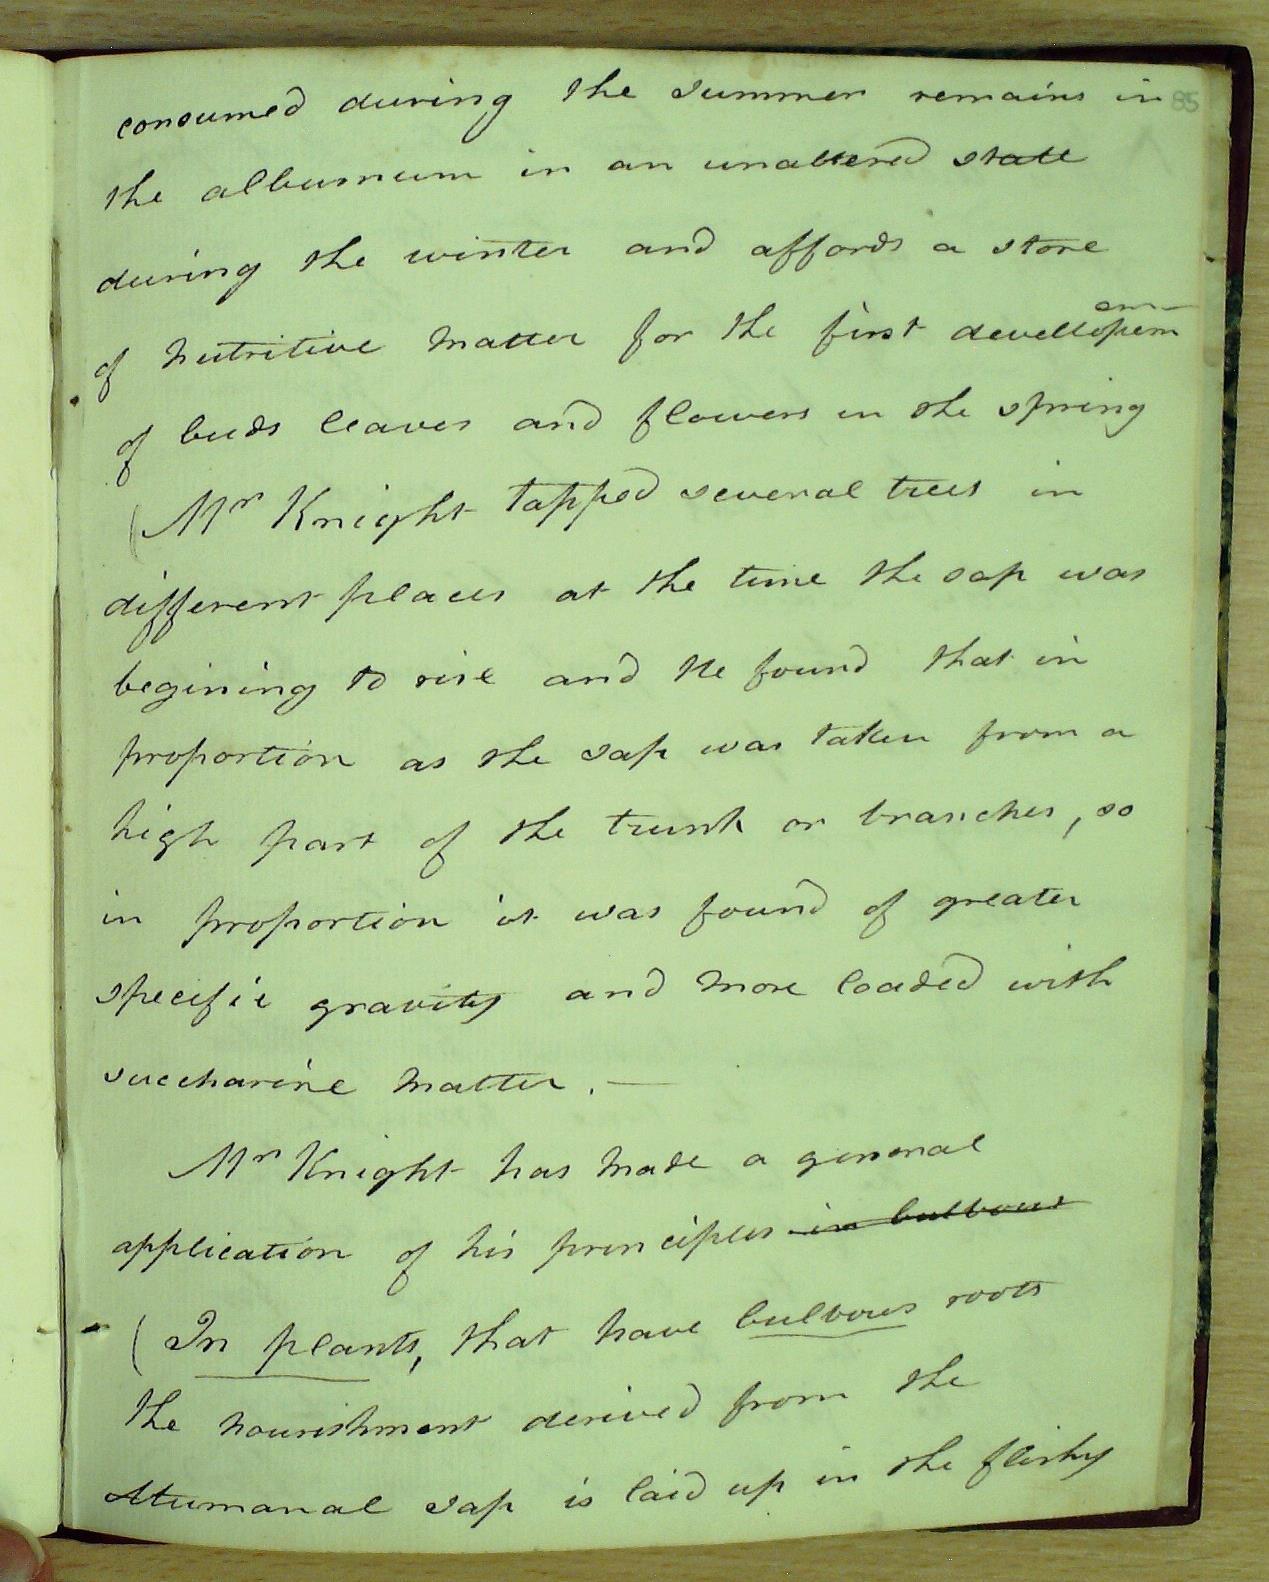 consumed during the summer remains in 85
the alburnum in an unaltered state
during the winter and affords a store
of nutritive matter for the first devellopem
of buds leaves and flowers in the spring
(Mr Knight tapped several trees in
different places at the time the sap was
begining to rise and he found that in
proportion as the sap was taken from a
high part of the trunk or branches, so
in proportion it was found of greater
specific gravity and more loaded with
succharine matter. —
Mr Knight has made a general
application of his principles in bulbous
( In plants, that have bulbous roots
the nourishment derived from the
Atumanal sap is laid up in the fleshy